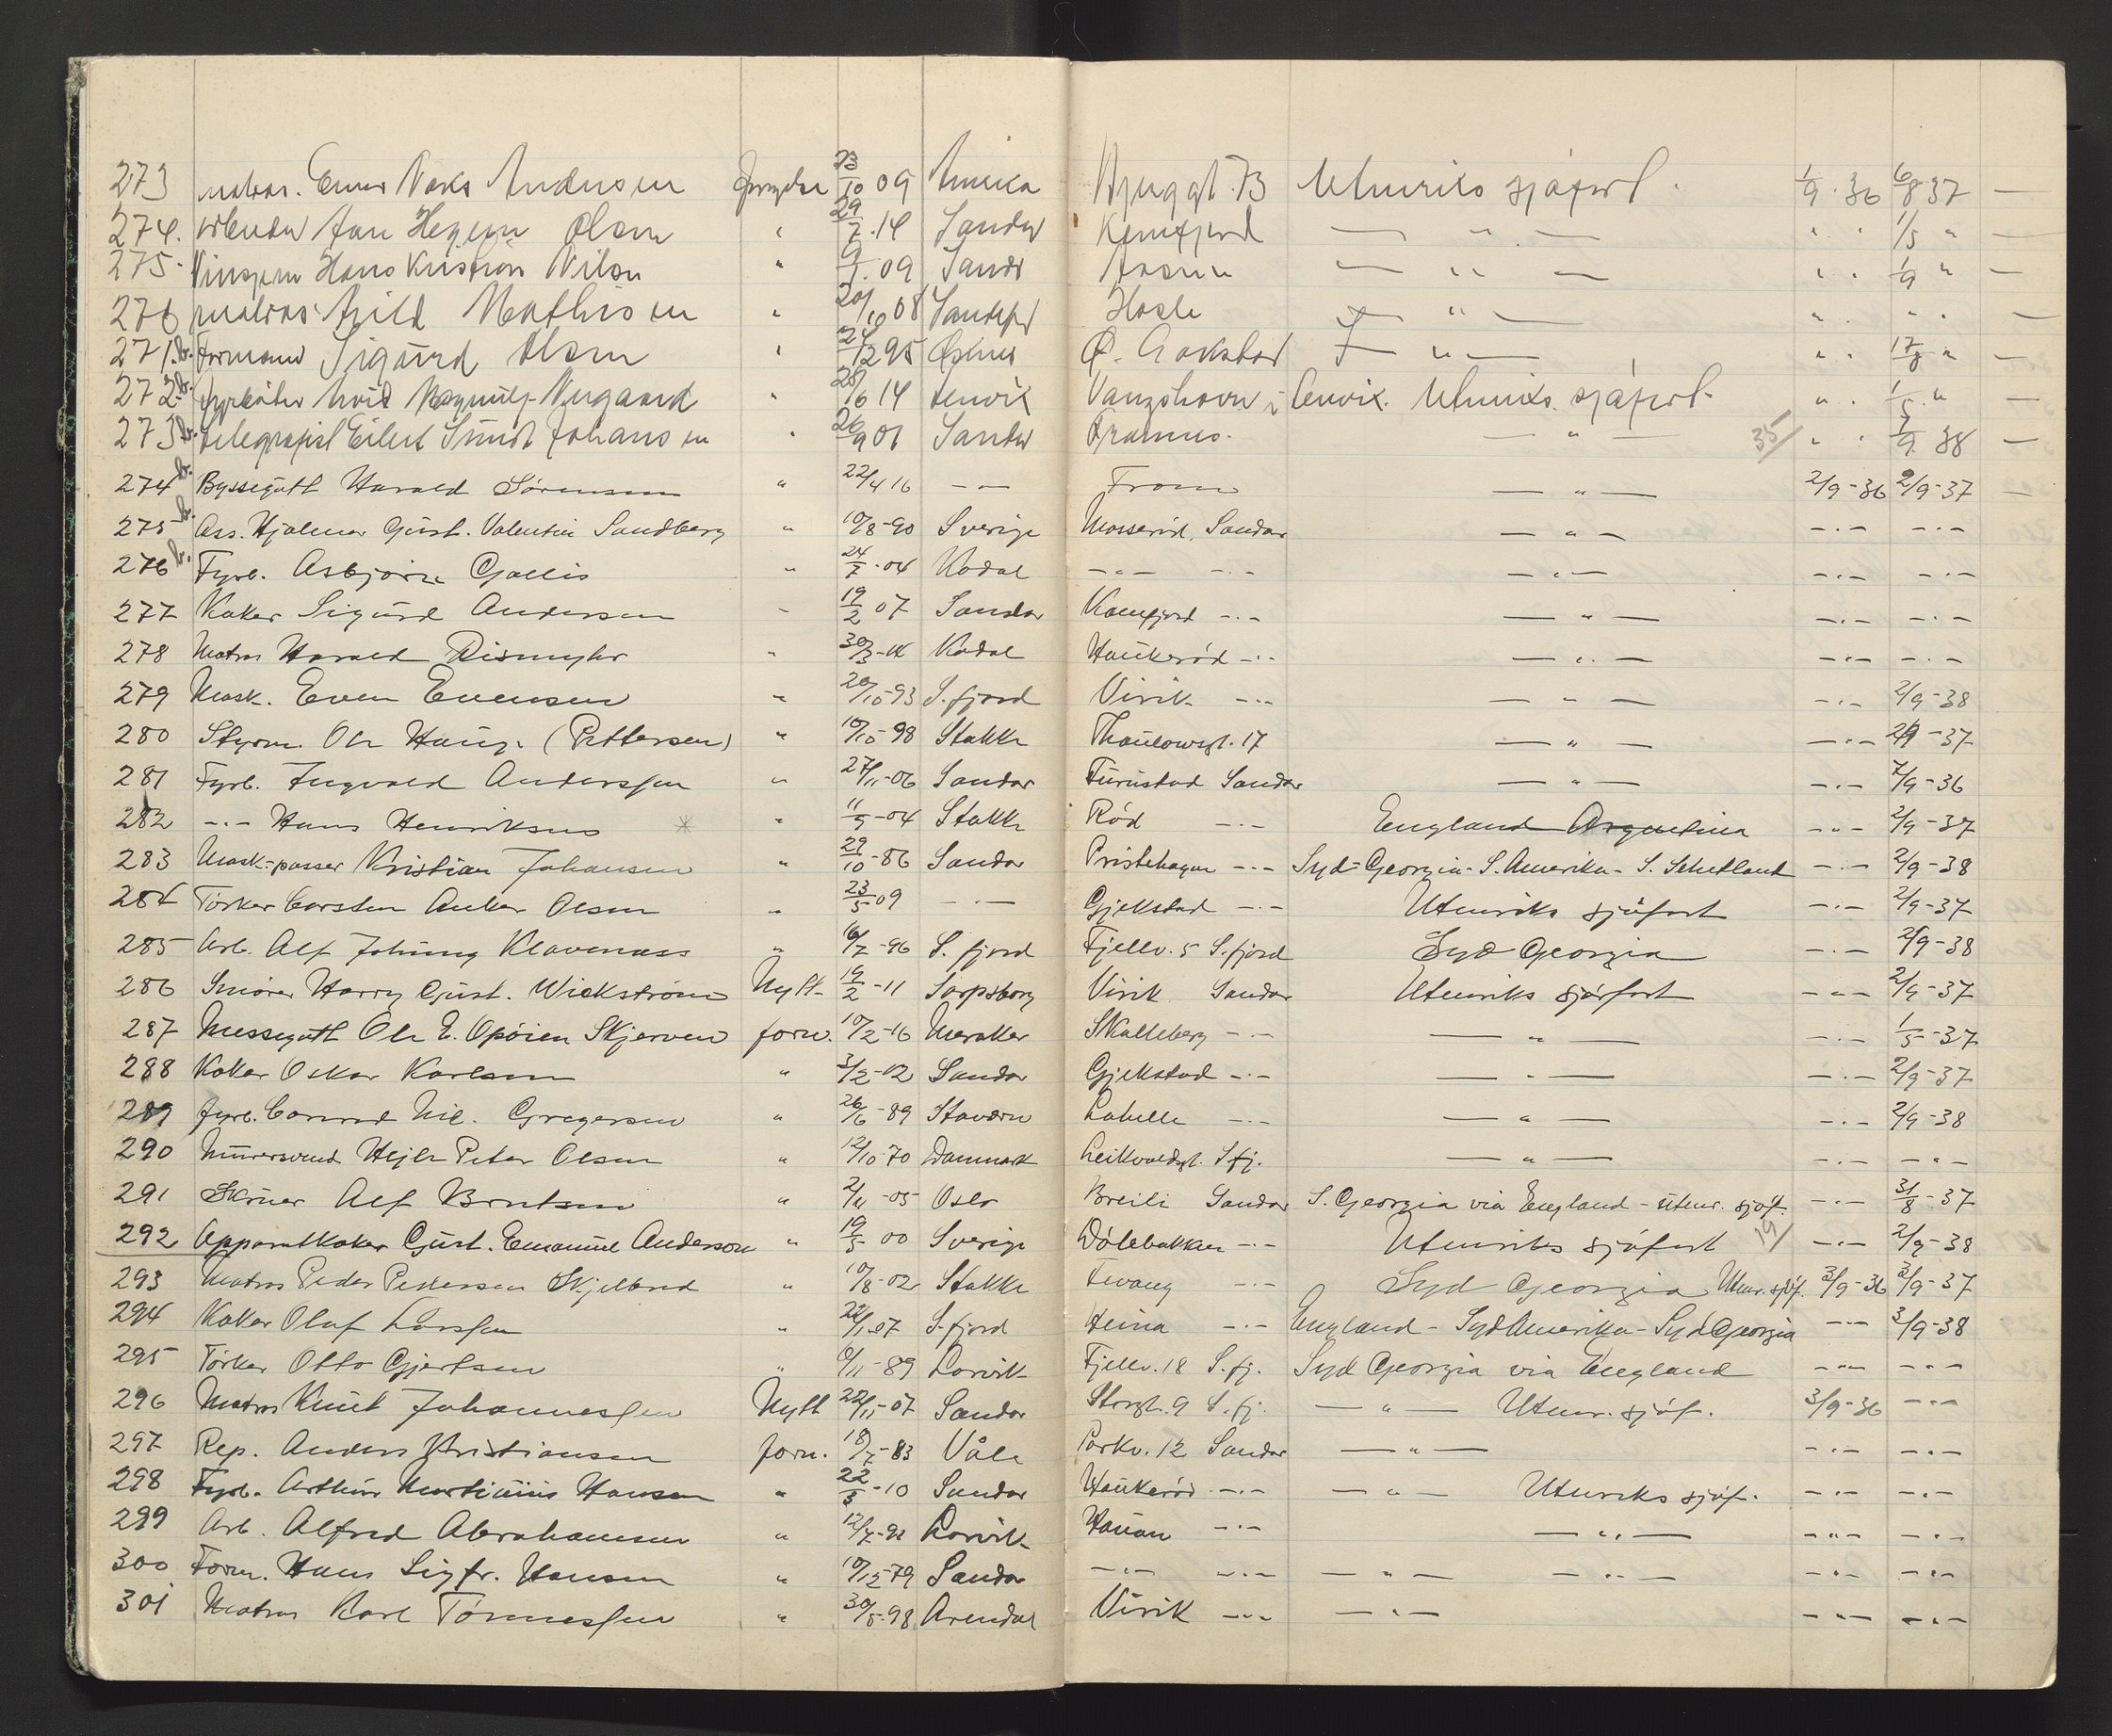 273 matros. Einar Noks Andersen fornyelse 23/10 09 Amerika Bjuggt. 73 Utenriks sjøfart. 1/9 . 36 6/8 37 —
274. Olsen " 29/7 . 14 Sandar Kamfjord — " — " " 1/5 " —
275. Hans Kristian Nilsen " 09 Sandar — " — " " 1/9 " —
276 matros Arild Mathisen " 20/10 08 Sandefjd Hasle — " — " " " " —
271.b. Formann Sigurd Olsen " 24/12 95 Ø. Gokstad — " — " " 17/8 " —
272b. Fyrbøter Nygaard " 28/6 14 Lenvik i Lenvik. Utenriks. sjøfart. " " 1/5 " —
273b. Telegrafist Eilert Sundt Johansen " 26/9 01 Sandar Framnes. — " — 35/ " " 1/9 38 —
274b. Byssegutt Harald Sørensen " 22/4 16 — — From — " — 2/9-36 2/9-37 —
275b. Ass. Hjalmar Gust. Valentin Sandberg " 10/8-90 Sverige Mosserød, Sandar — " — -"- -"-
276b. Fyrb. Asbjørn Gallis " 24/7-04 Kodal -"- -"- — " — -"- -"-
277 Koker Sigurd Andersen " 19/2 07 Sandar Kamfjord -"- — " — -"- -"-
278 Matros Harald Dismyhr " 30/3-14 Kodal Haukerød -"- — " — -"- -"-
279 Mask. Even Evensen " 20/10-93 S.fjord Virik -"- — " — -"- 2/9-38
280 Styrm. Ole Haug. (Pettersen) " 10/10-98 Stokke Thaulowsgt. 17 — " — -"- 2/9-37
281 Fyrb. Ingvald Anderssen " 27/11-06 Sandar Furustad Sandar — " — -"- 7/9-36
282 -"- Hans Henriksen * " 11/9-04 Stokke Rød -"- England Argentina -"- 2/9-37
283 Mask-passer Kristian Johansen " 29/10-86 Sandar Pristehagen -"- Syd-Georgia-S.Amerika-S. Schetland -"- 2/9-38
284 Tørker Carsten Anker Olsen " 23/5 09 -"- Gjekstad -"- Utenriks sjøfart -"- 2/9-37
285 Arb. Alf Johnny Klavenæss " 6/7-96 S. fjord Fjellv. 5 S.fjord Syd Georgia -"- 2/9-38
286 Smører Harry Gust. Wickstrøm Nytt 19/2-11 Sarpsborg Virik Sandar Utenriks sjøfart -"- 2/9-37
287 Messegutt Ole E. Opøien Skjerven forn. 10/2-16 Meraker Skalleberg -"- — " — -"- 1/5-37
288 Koker Oskar Karlsen " 3/2-12 Sandar Gjekstad -"- — " — -"- 2/9-37
289 Fyrb. Conrad Nil. Gregersen " 26/6-89 Stavern Labelle -"- — " — -"- 2/9-38
290 Murersvend Hejle Peter Olsen " 12/10-70 Danmark Leikvoldgt. Sfj. — " — -"- -"-
291 Skruer Alf Berntsen " 2/11-05 Oslo Breili Sandar S. Georgia via England - utenr. sjøf. -"- 31/8-37
292 Apparatkoker Gust. Emanuel Anderson " 19/5 00 Sverige Dølebakken -"- Utenriks sjøfart 19/ -"- 2/9-38
293 Matros Peder Pettersen Skjelbred " 10/8-02 Stokke Tevang -"- Syd Georgia Utenr. sjøf. 3/9-36 3/9-37
294 Koker Olaf Larssen " 22/1-07 S.fjord Heina -"- England - Syd Amerika - Syd Georgia -"- 3/9-38
295 Tørker Otto Gjertsen " 6/11-89 Larvik Fjellv. 18 S.fj. Syd Georgia via England -"- -"-
296 Matros Knut Johannessen Nytt 22/11-07 Sandar Storgt. 9 S.fj. — " — Utenr. sjøf. 3/9-36 -"-
297 Rep. Anders Kristiansen forn. 18/7-83 Våle Parkv. 12 Sandar — " — -"- -"-
298 Fyrb. Arthur Martinius Hansen " 22/3-10 Sandar Haukerød -"- — " — Utenriks sjøf. -"- -"-
299 Arb. Alfred Abrahamsen " 12/7-92 Larvik Hauan -"- — " — -"- -"-
300 Form. Hans Sigfr. Hansen " 10/12-79 Sandar -"- -"- — " — — " — -"- -"-
301 Matros Karl Tønnessen " 30/5-98 Arendal Virik -"- — " — -"- -"-